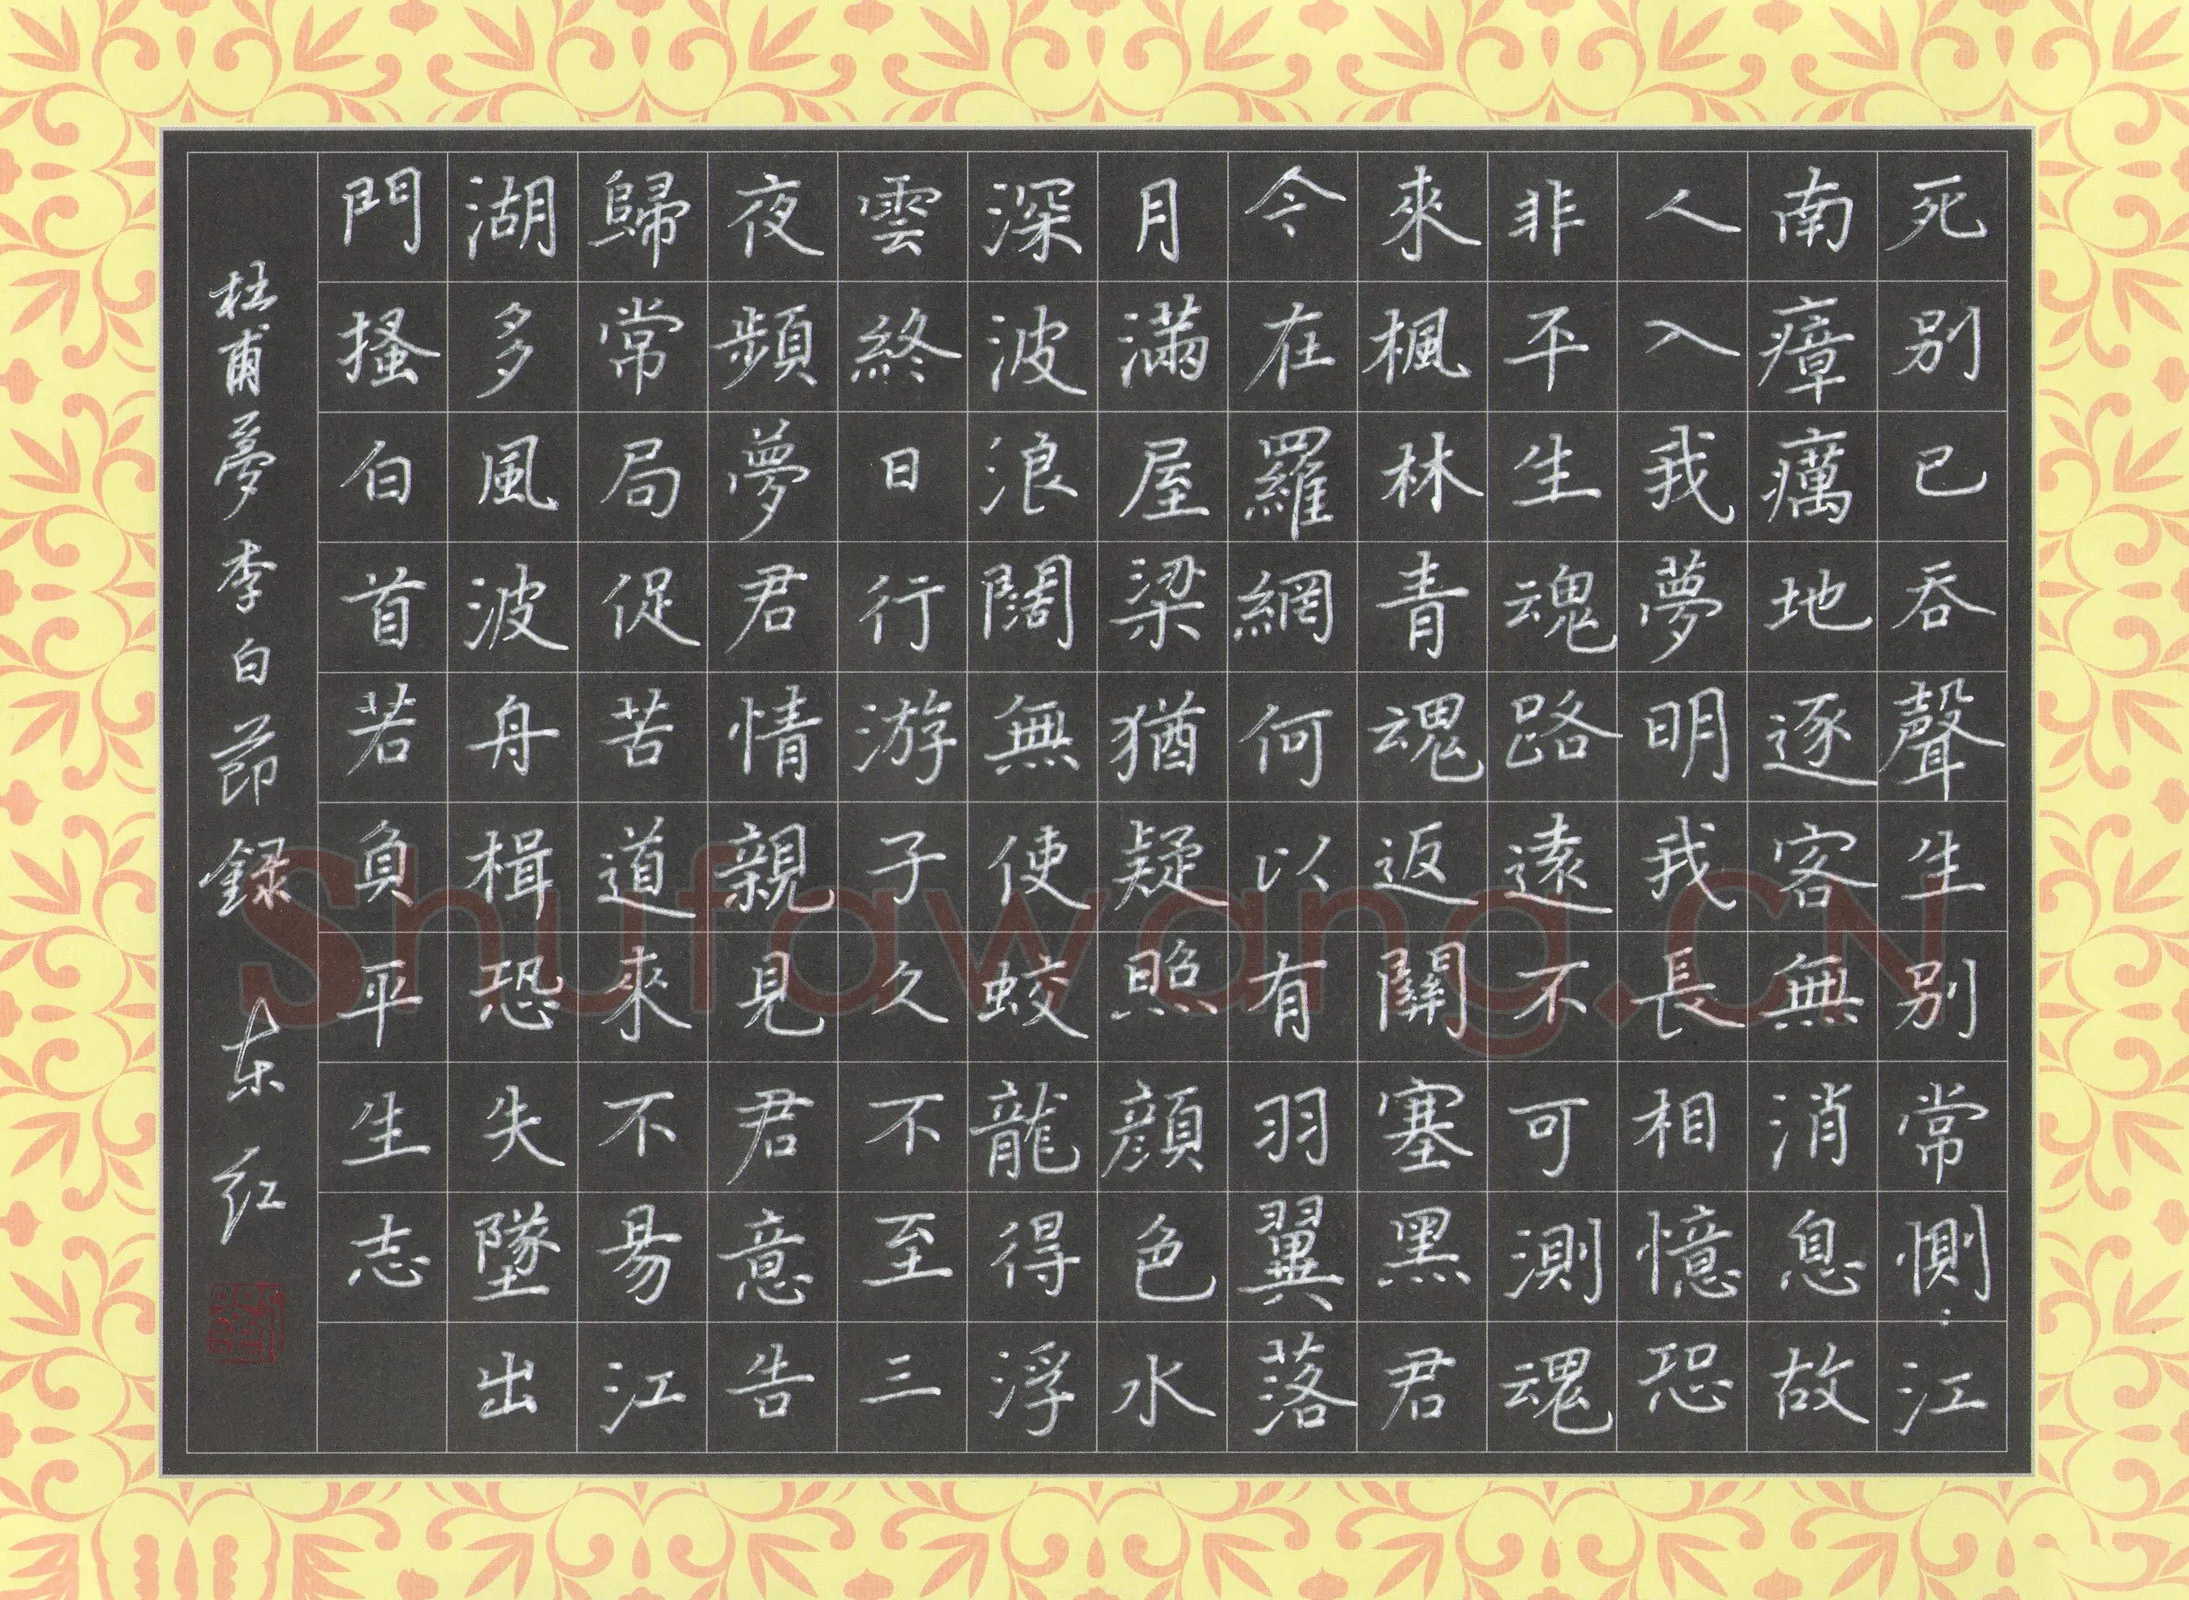 死别已吞聲生别常惻:江
南瘴癘地逐客無消息故
人入我夢明我長相憶恐
非平生魂路遠不可測魂
來楓林青魂返關塞黑君
今在羅網何以有羽翼落
月滿屋梁猶疑照顔色水
深波浪闊無使蛟龍得浮
雲終日行游子久不至三
夜頻夢君情親見君意告
歸常局促苦道來不易江
湖多風波舟楫恐失墜出
門搔白首若負平生志
杜甫夢李白節録东红
Shufawang.CN